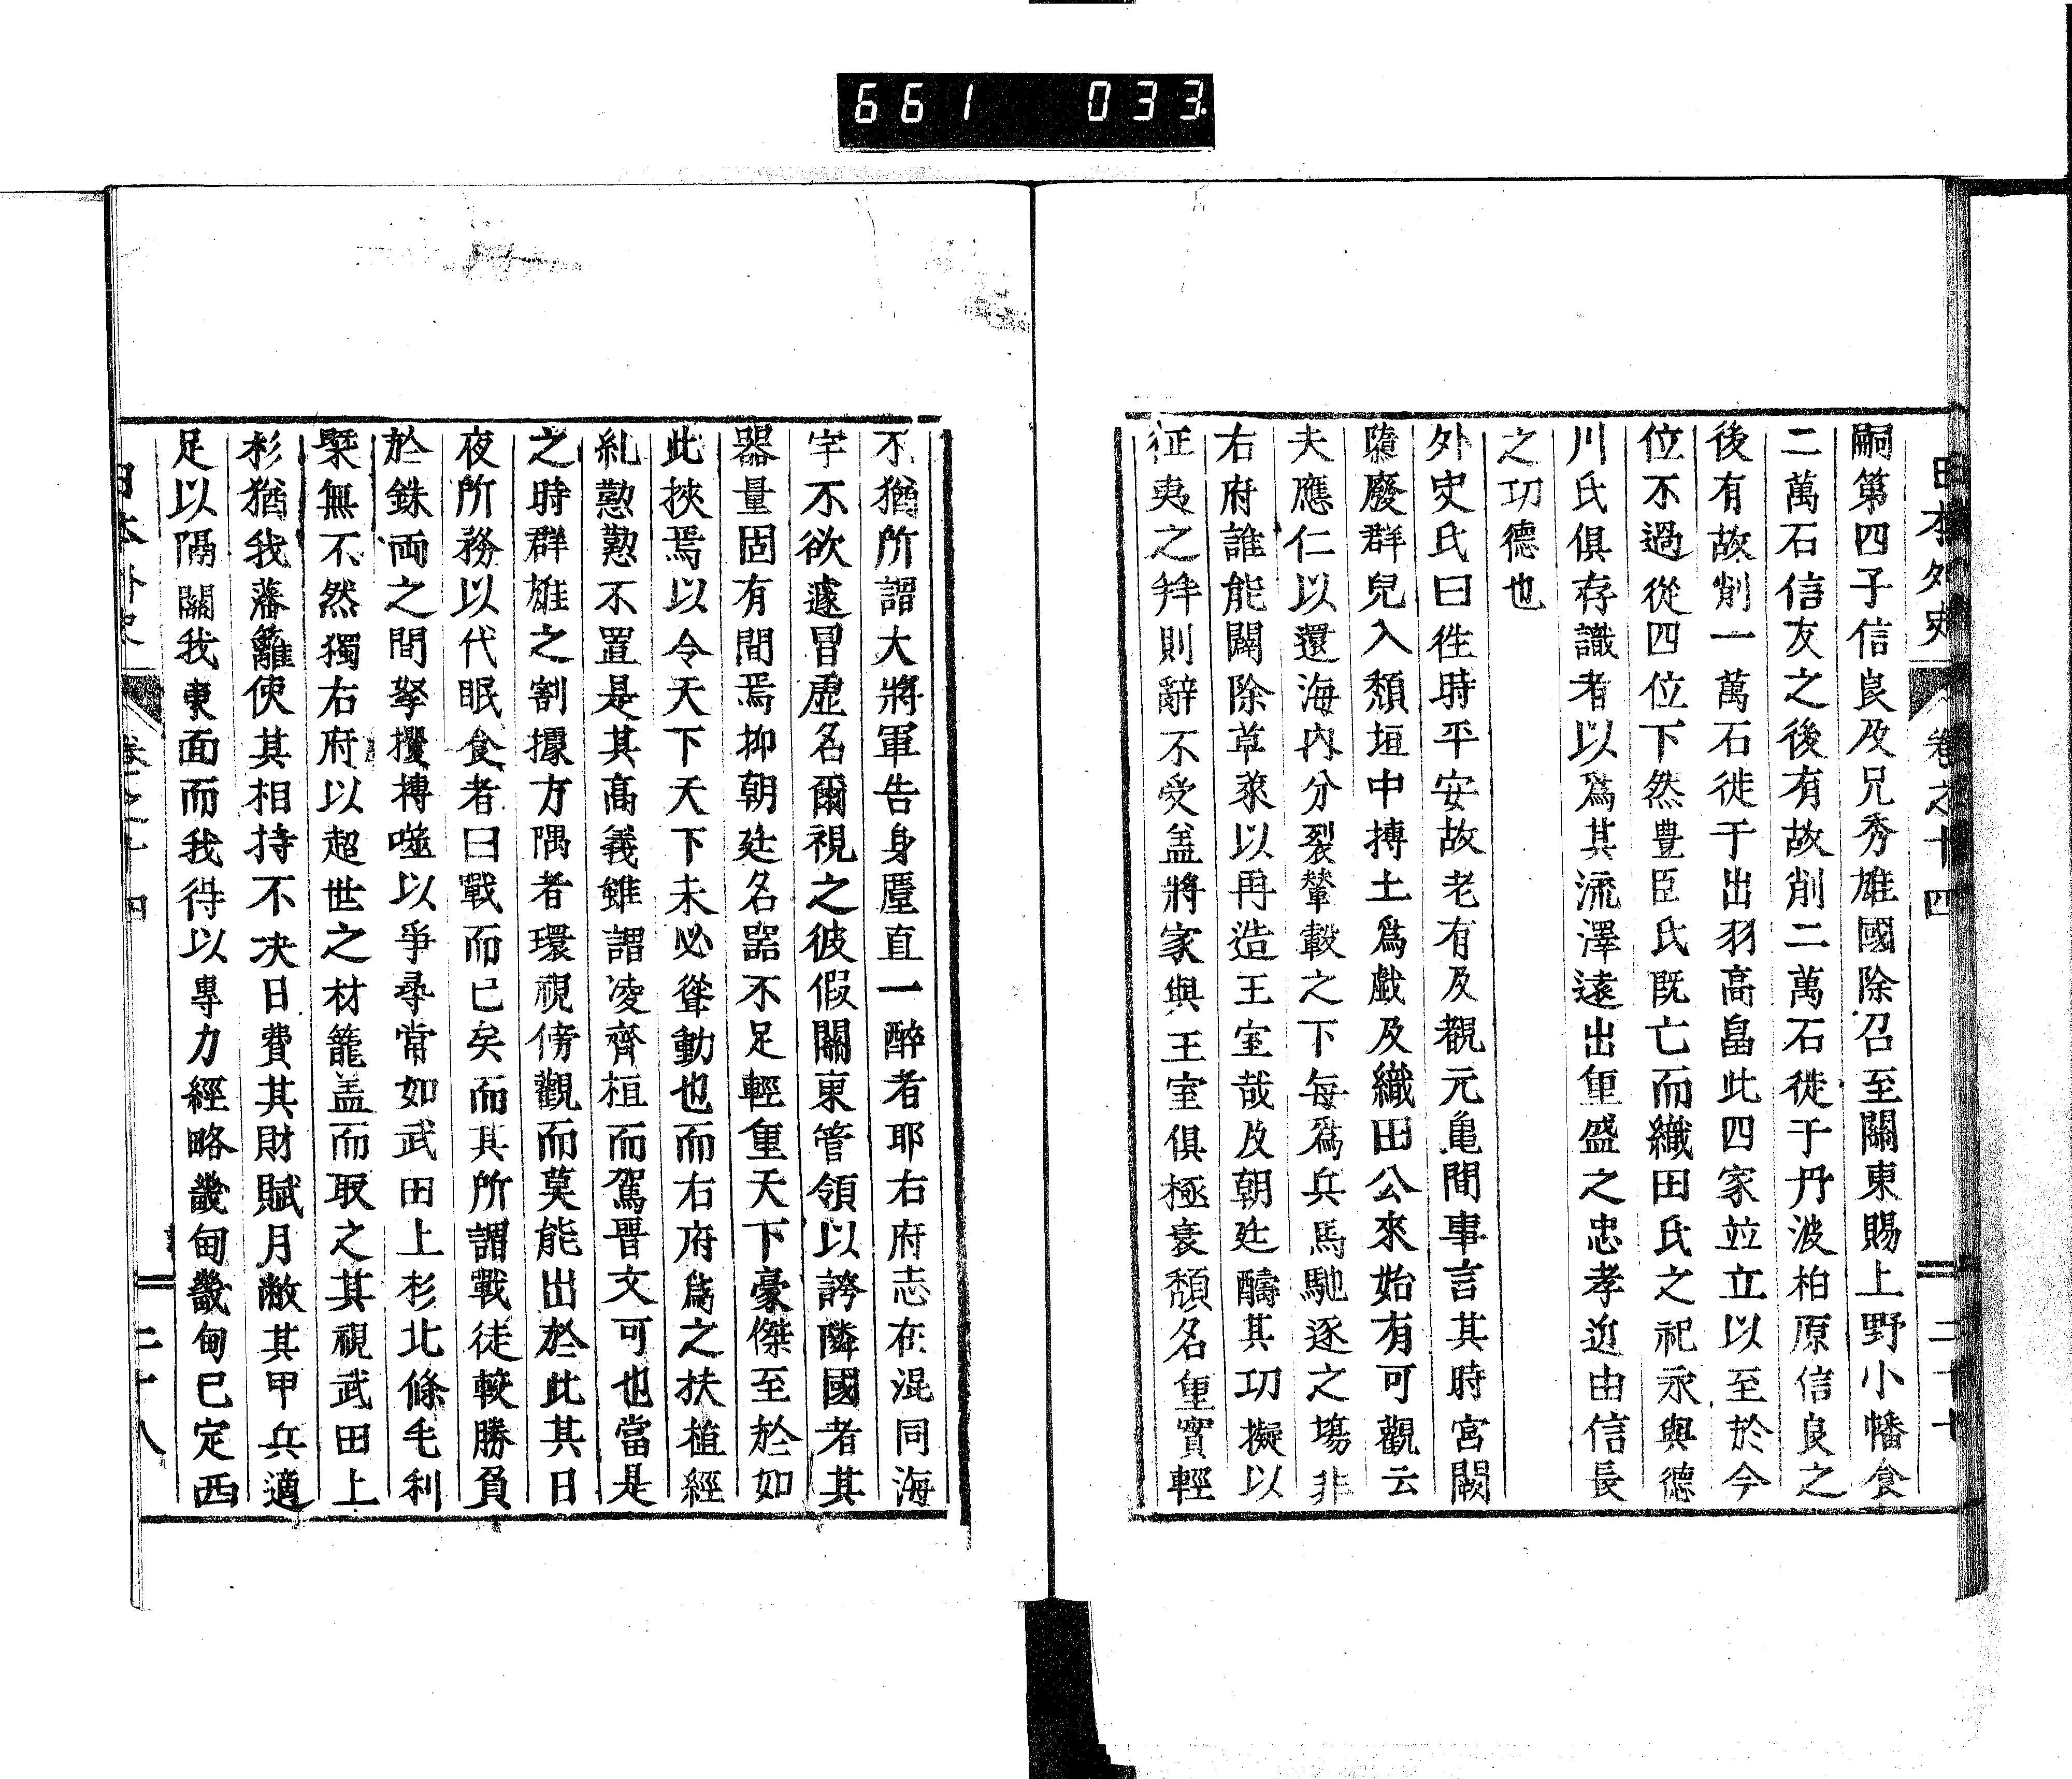 661 033
日本外史 卷之十四 二十七
嗣第四子信良及兄秀雄國除召至關東賜上野小幡食
二萬石信友之後有故削二萬石徙于丹波柏原信良之
後有故削一萬石徙于出羽高畠此四家並立以至於今
位不過從四位下然豊臣氏既亡而織田氏之祀永與德
川氏俱存識者以爲其流澤遠出重盛之忠孝近由信長
之功德也
外史氏曰徃時平安故老有及觀元亀間事言其時宮闕
隳廢群兒入頽垣中摶土爲戲及織田公來始有可觀云
夫應仁以還海内分裂輦轂之下每爲兵馬馳逐之場非
右府誰能闢除草萊以再造王室哉及朝廷醻其功擬以
征夷之拜則辭不受盖將家與王室俱極衰頽名重實輕
不猶所謂大將軍告身墨直一醉者耶右府志在混同海
宇不欲遽冒虚名爾視之彼假關東管領以誇隣國者其
器量固有間焉抑朝廷名器不足輕重天下豪傑至於如
此挾焉以令天下天下未必聳動也而右府爲之扶植經
糺懃懃不置是其髙義雖謂凌齊桓而駕晋文可也當是
之時群雄之割據方隅者環視傍觀而莫能出於此其日
夜所務以代眠食者曰戰而已矣而其所謂戰徒較勝負
於銖両之間拏攫搏噬以爭尋常如武田上杉北條毛利
槩無不然獨右府以超世之材籠盖而取之其視武田上
杉猶我藩籬使其相持不决日費其財賦月敝其甲兵適
足以隔闔我東面而我得以專力經略畿甸畿甸已定西
日本外史 卷之十四 二十八